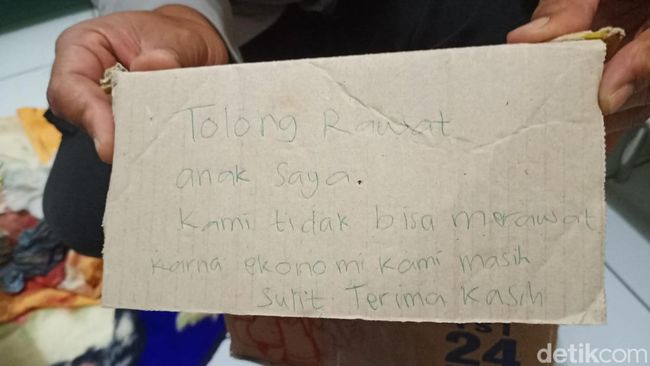 Tolong Rawat
anak saya.
Kami tidak bisa merawat
karna ekonomi kami masih
Sulit Terima Kasih
24
detikcom